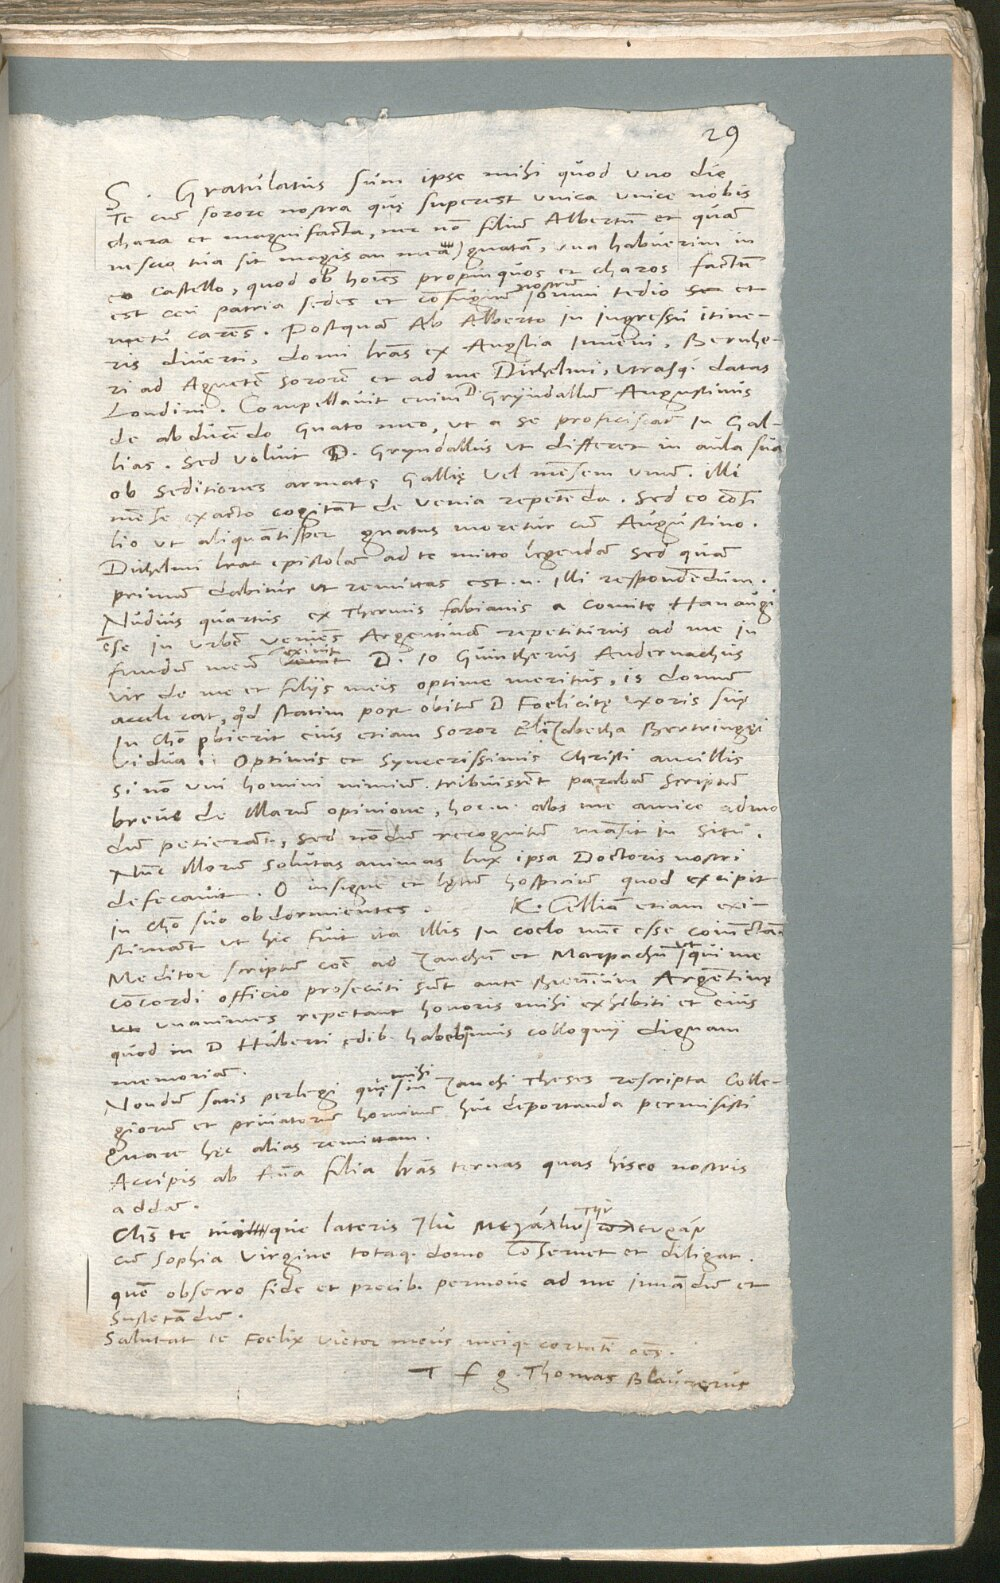 29
S. Gratulatus sum ipse mihi quod uno die
Te cum sorore nostra quę superest unica unice nobis
chara et magnifacta, nec nō filiū Albertū et quā
nescio tua sit magis an mea) gnatā, una habuerim in
eo Castello, quod ob hoīes propinquos et charos factū
est ceu patria sedes et confugium nostrum omni tedio et
metu carēs. Postquā Ab Alberto in ingressu itine-
ris diverti, domi lrās ex Anglia inveni, Bernhe-
ri ad Agnetē sororē et ad me Dithelmi, utrasq. datas
Londini. Compellavit enim D. Gryndallum Augustinus
de abducēdo gnato meo, ut a se proficiscat in Gal-
lias. Sed voluit D. Gryndallus ut differret in aula sua
ob seditiones armatę Gallię vel mēsem unum. illi
mēse exacto cogitāt de venia repetēda. Sed eo cōsi
lio ut aliquātisper gnatus moretur cū Augustino.
Dithelmi epistolam ad te mitto legendā sed quā
primum dabitur ut remittas est .n. illi respondēdum.
Nudius quartus ex Thermis fabianis a comite Hanaugi
ēse in urbē veniēs Argentinā repetiturus ad me in
fundum meū exivit D. Io Guintherus Andernachus
vir de me et filijs meis optime meritus, is domum
accelerat, qd statim post obitum D Foelicitę uxoris suę
In Chō obierit eius etiam soror Elizabetha Bertringęi
vidua Optimis et syncerissimis Christi ancillis
si nō uni homini nimiū tribuissent parabam scriptum
breve de illarum opinione, hoc .n. abs me amice admo
dum petierant, sed nōdum recognitum māsit in situ.
Nūc illorum solutas animas lux ipsa Doctoris nostri
defecavit. O insigne et lętum hospicium quod excipit
in Chō suo obdormientes. K. Celliā etiam exi-
stimant ut hic fuit ita illis in coelo nūc esse
Meditor scriptum coē ad Zanchū et Marpachū ut qui me
cōcordi officio prosecuti sūt ante Biennium Argentinę
unanimes repetant honoris mihi exhibiti et eius
quod in D Huberti ędib. habebimus colloquij dignam
memoriam.
Nondum satis perlegi quę mihi in Zanchi Theses rescripta Colle-
giorum et privatorum hominum huc deportanda permisisti
Quare hęc alias remittam.
Accipis ab Anna filia lrās ternas quas hisco nostris
addam.
Chs te tuique lateris
cū Sophia virgine totaq. domo Conservet et diligat.
quē obsecro fide et precib. permove ad me iuvādum et
sustētādum.
Salutat te Foelix Victor meus meiq. certatī oēs.
T f g. Thomas Blaurerus